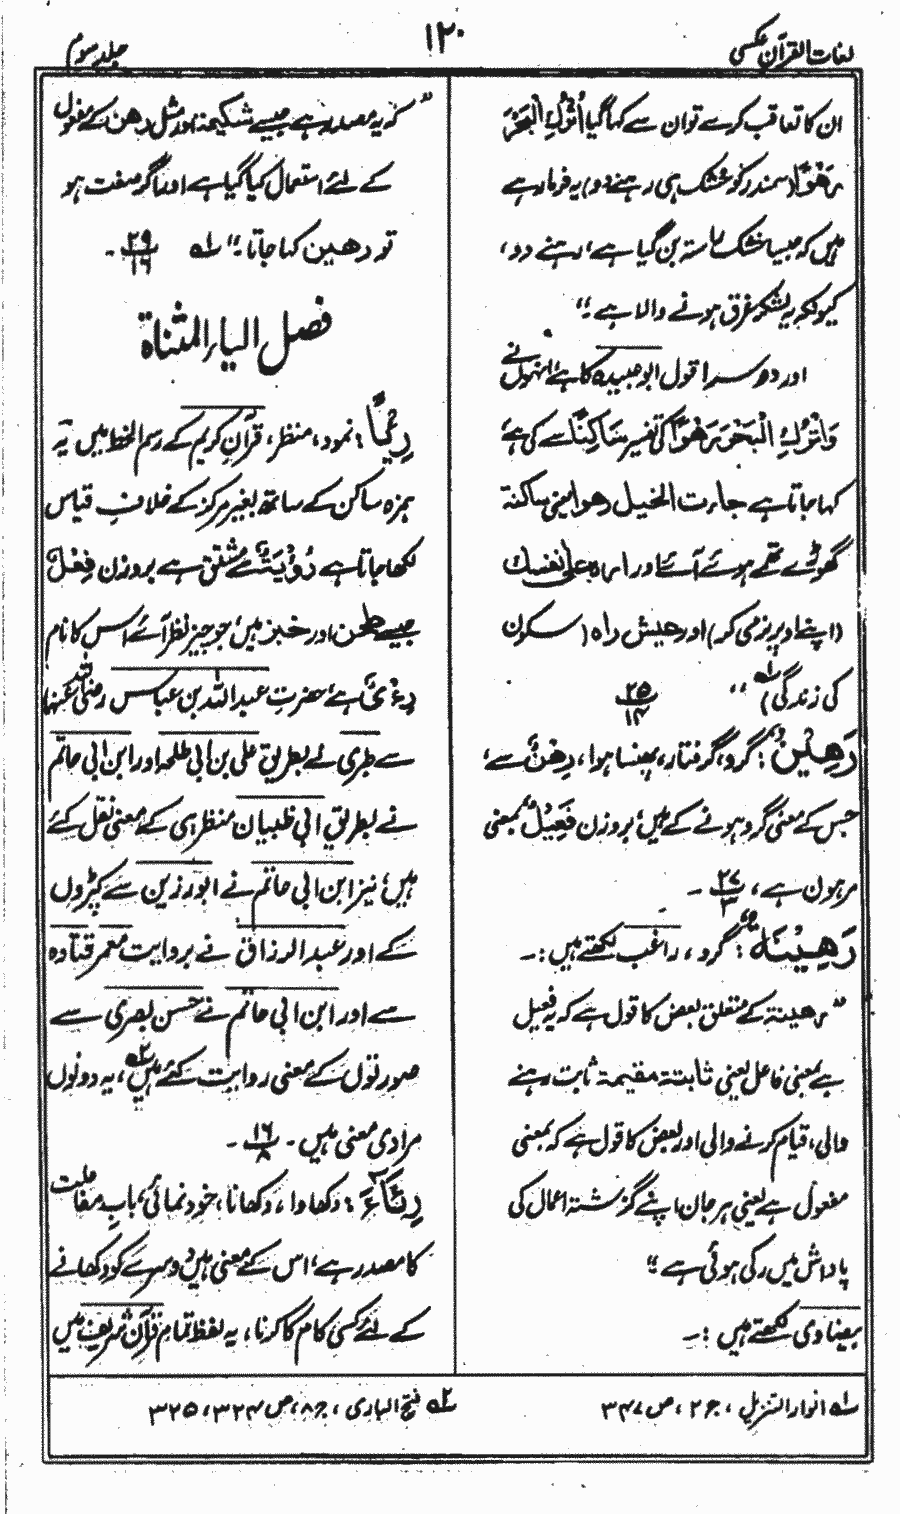 لغات القرآن عکسی
۱۲۰
جلد سوم
ان کا تعاقب کرنے سے تو ان سے کہا گیا اُتْرُكِ الْبَحْرَ
رَهْوًا (سمندر کو خشک ہی رہنے دو) یہ فرما رہے
ہیں کہ جیسا خشک راستہ بن گیا ہے، رہنے دو،
کیونکہ یہ لشکر غرق ہونے والا ہے ؛"
اور دوسرا قول ابو عبیدہ کا ہے، انہوں نے
وَاتْرُكِ الْبَحْرَ رَهْوًا کی تفسیر سَاكِنًا سے کی ہے
کہا جاتا ہے جاءت الخيل رهوا یعنی ساکنۃ
گھوڑے تھمے ہوئے آئے اور اربہ علی نفسك
(اپنے اوپر نرمی کر) اور عیش راہ (سکون
کی زندگی) "۱؎ ۲۵/۱۴
رَهِينٌ: گرو، گرفتار، پھنسا ہوا، رَهْنٌ سے،
جس کے معنی گرو ہونے کے ہیں، بروزن فَعِيْلٌ بمعنی
مرہون ہے، ۲۷/۳ ۔
رَهِيْنَةٌ: گرو، راغب لکھتے ہیں :۔
" رهينة کے متعلق بعض کا قول ہے کہ یہ فعیل
ہے بمعنی فاعل یعنی ثابتة مقيمة ثابت رہنے
والی، قیام کرنے والی اور بعض کا قول ہے کہ بمعنی
مفعول ہے یعنی ہر جان اپنے گزشتہ اعمال کی
پاداش میں رکی ہوئی ہے ؛"
بیضاوی لکھتے ہیں :۔
" کہ یہ مصدر ہے جیسے شکیمۃ اور مثل رهن کے مفعول
کے لئے استعمال کیا گیا ہے اور اگر صفت ہو
تو رهین کہا جاتا ؛" ۱؎ ۲۹/۱۶ ۔
فصل الیاء المثناۃ
رِءْيًا: نمود، منظر، قرآن کریم کے رسم الخط میں یہ
ہمزہ ساکن کے ساتھ بغیر مرکز کے خلاف قیاس
لکھا جاتا ہے رُؤْيَةٌ سے مشتق ہے بروزن فِعْلٌ
جیسے طحن اور خبز ہیں، جو چیز نظر آئے اس کا نام
رِءْيٌ ہے، حضرت عبد اللہ بن عباس رضی اللہ عنہما
سے طبری نے بطریق علی بن ابی طلحہ اور ابن ابی حاتم
نے بطریق ابی ظبیان منظر ہی کے معنی نقل کئے
ہیں، نیز ابن ابی حاتم نے ابو رزین سے کپڑوں
کے اور عبد الرزاق نے بروایت معمر قتادہ
سے اور ابن ابی حاتم نے حسن بصری سے
صورتوں کے معنی روایت کئے ہیں۲؎، یہ دونوں
مرادی معنی ہیں۔ ۱۶/۸ ۔
رِئَاءَ: دکھاوا، دکھانا، خود نمائی، باب مفاعلت
کا مصدر ہے، اس کے معنی ہیں دوسرے کو دکھانے
کے لئے کسی کام کا کرنا، یہ لفظ تمام قرآن شریف میں
۱؎ انوار التنزیل، ج ۲، ص ۳۴۷
۲؎ فتح الباری، ج ۸، ص ۳۲۴، ۳۲۵